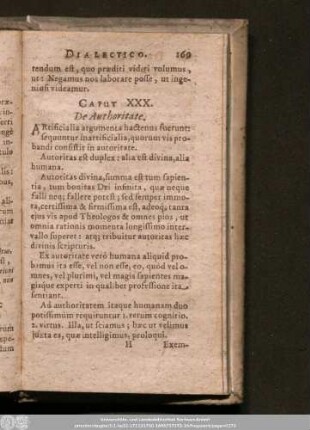 DIALECTICO. 169
tendum est, quo præditi videri volumus,
ut: Negamus nos laborare posse, ut inge-
niosi videamur.
CAPUT XXX.
De Authoritate.
ARtificialia argumenta hactenus fuerunt:
sequuntur inartificialia, quorum vis pro-
bandi consistit in autoritate.
Autoritas est duplex: alia est divina, alia
humana.
Autoritas divina, summa est tum sapien-
tia, tum bonitas Dei infinita, quæ neque
falli neq; fallere potest; sed semper immo-
ta, certissima & firmissima est, adeoq; tanta
ejus vis apud Theologos & omnes pios, ut
omnia rationis momenta longissimo inter-
vallo superet: atq; tribuitur autoritas hæc
divinis scripturis.
Ex autoritate verò humana aliquid pro-
bamus ita esse, vel non esse, eo, quòd vel o-
mnes, vel plurimi, vel magis sapientes ma-
gisque experti in qualibet professione ita
sentiant.
Ad authoritatem itaque humanam duo
potissimùm requiruntur 1. rerum cognitio.
2. virtus. Illa, ut sciamus; hæc ut velimus
juxta ea, quæ intelligimus, proloqui.
H Exem-